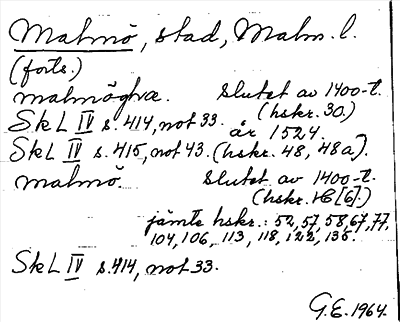 Malmö, stad, Malm. l.
(forts.)
malmöghæ. slutet av 1400-t.
(hskr. 30.)
SkL IV s. 414, not 33.
år 1524.
SkL IV s. 415, not 43. (hskr. 48, 48a).
malmö. slutet av 1400-t.
(hskr. [6].)
jämte hskr.: 52, 57, 58, 67, 77,
104, 106, 113, 118, 122, 135.
SkL IV s. 414, not 33.
G.E. 1964.